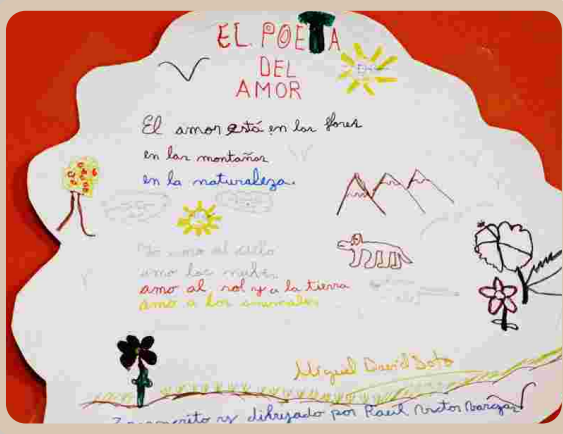 EL POETA
DEL
AMOR
El amor está en las flores
en las montañas
en la naturaleza.
Yo amo al cielo
amo las nubes
amo al sol y a la tierra
amo a los animales
Miguel David Soto
y dibujado por Raúl Victor Vargas